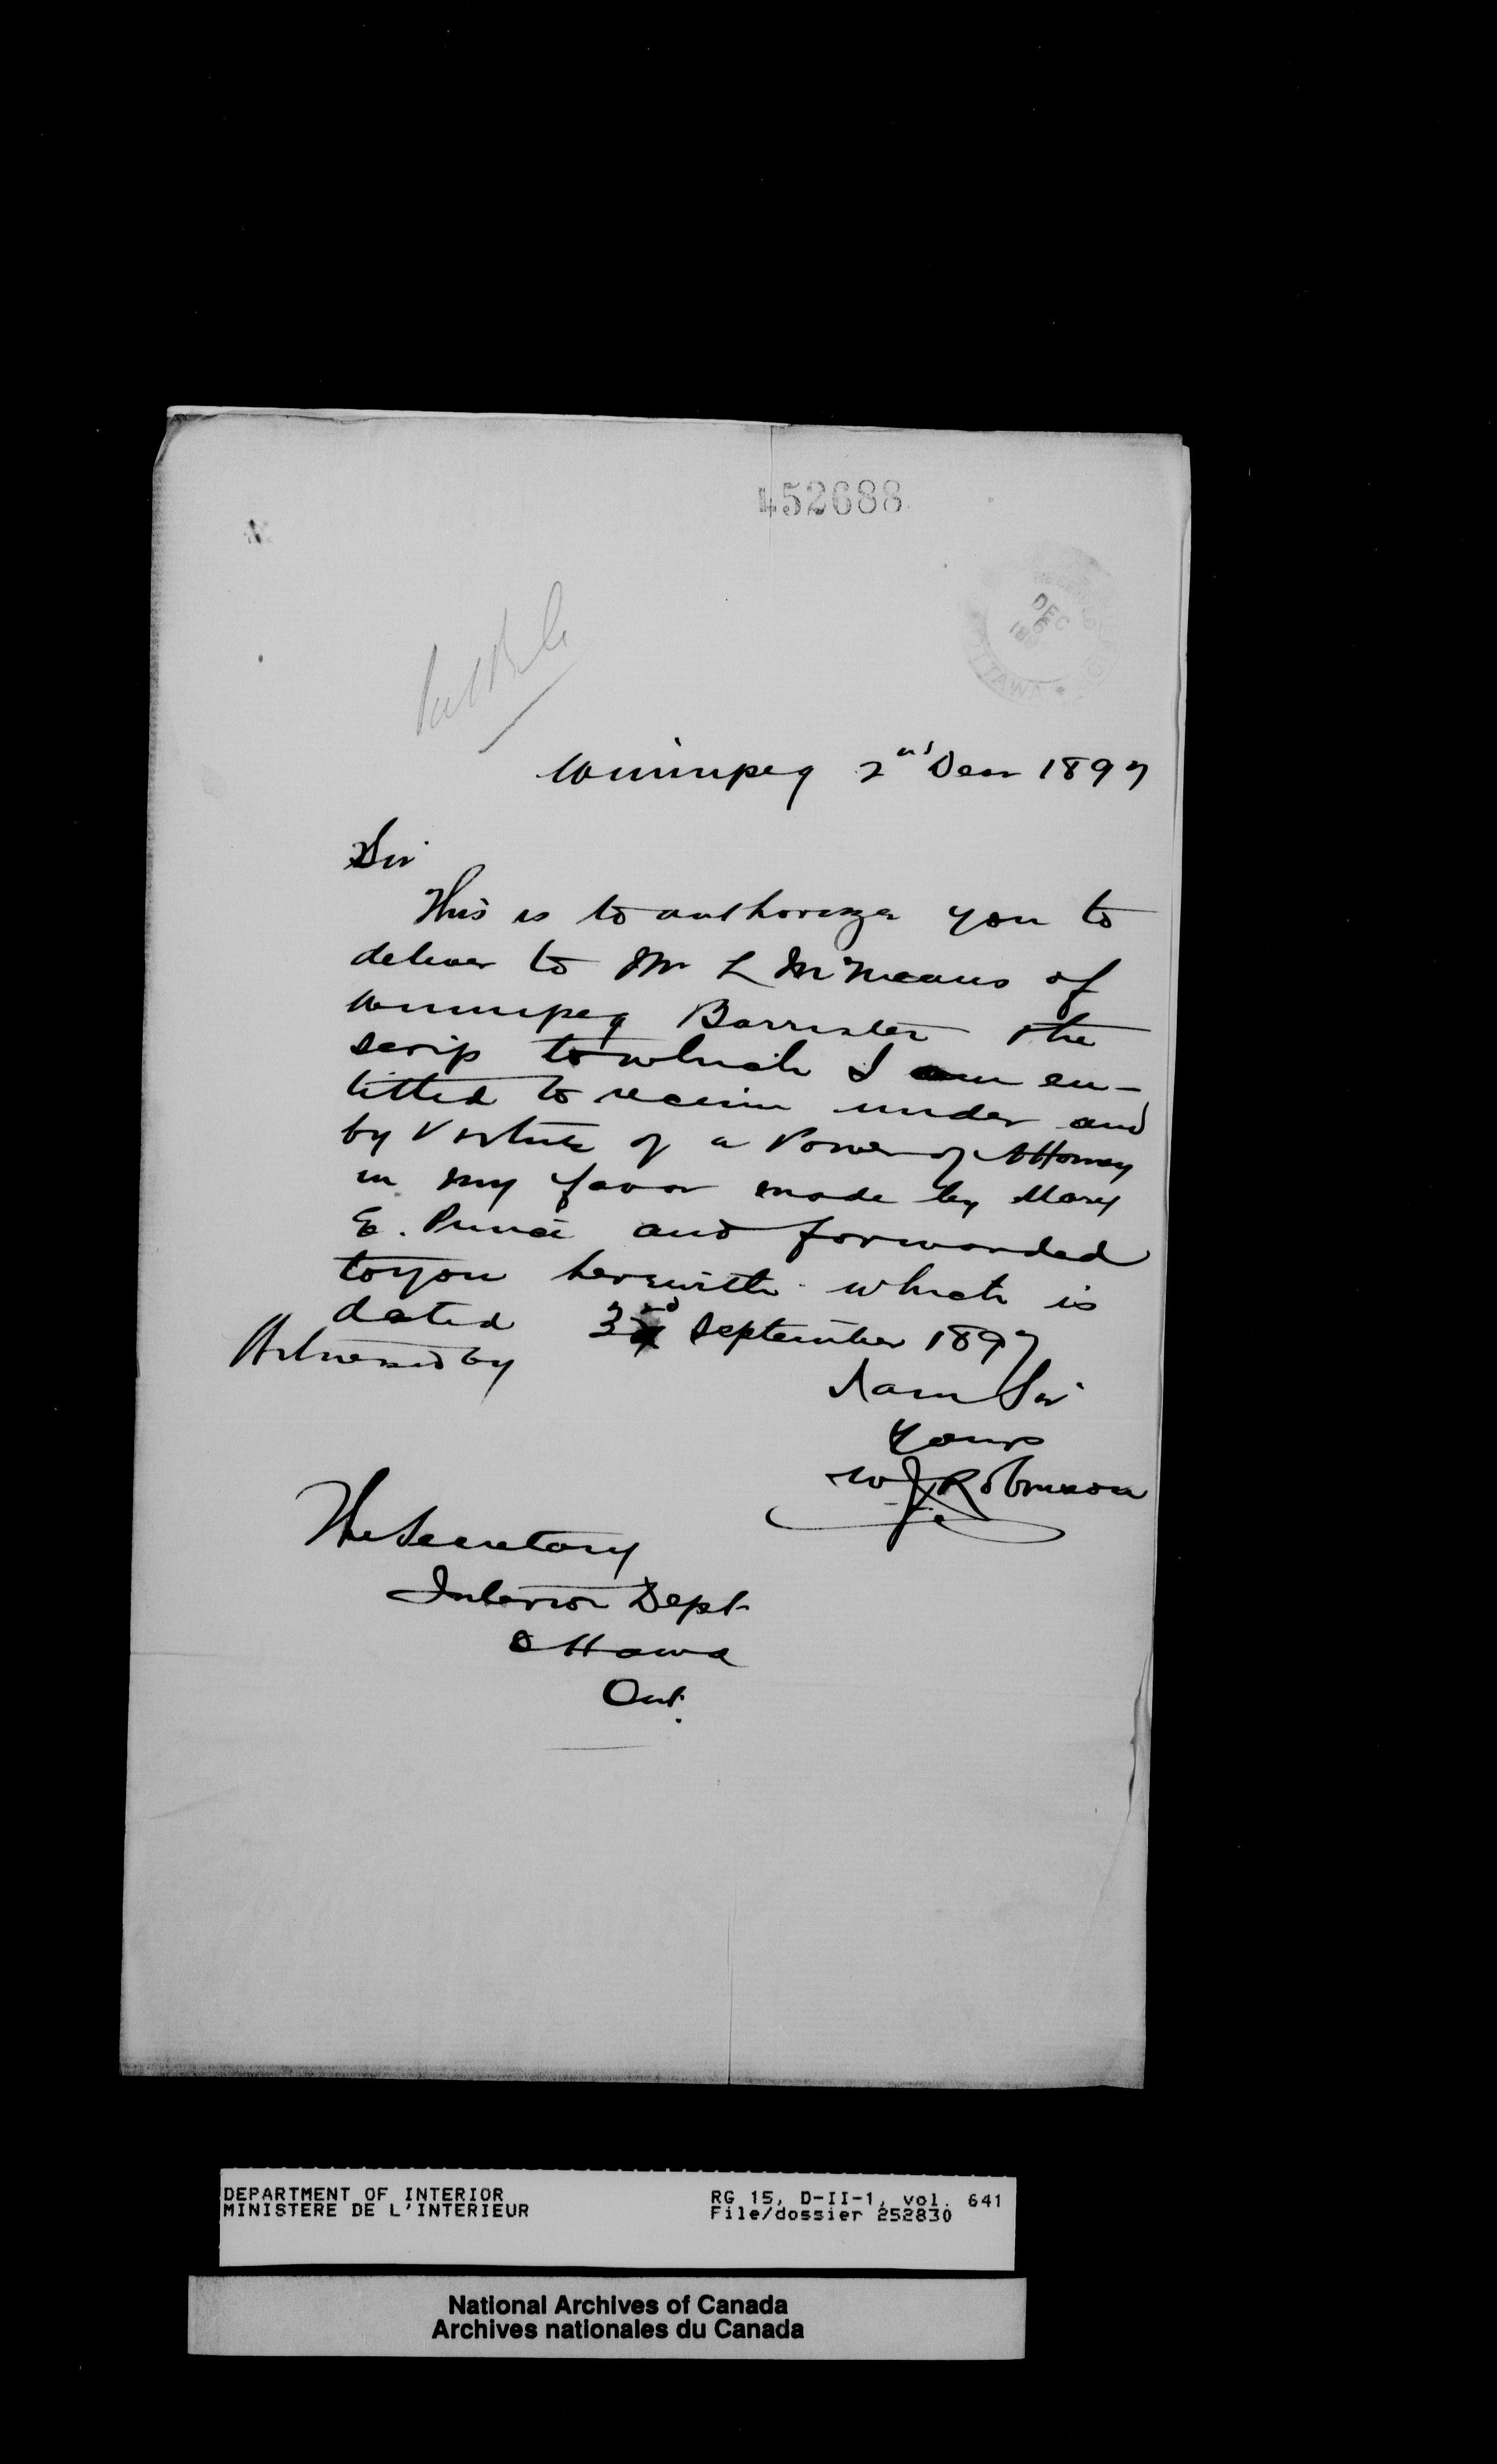 452688
DEC
6
OTTAWA
Winnipeg 2nd Decr 1897
Sir
This is to authorize you to
deliver to Mr L McMeans of
Winnipeg Barrister the
scrip to which I am en-
titled to receive under and
by virtue of a Power of Attorney
in my favor made by Mary
E. Prince and forwarded
to you herewith which is
dated 3rd September 1897
Witnessed by
I am Sir
Yours
W J Robinson
The Secretary
Interior Dept
Ottawa
Ont.
DEPARTMENT OF INTERIOR
MINISTERE DE L'INTERIEUR
RG 15, D-II-1, vol. 641
File/dossier 252830
National Archives of Canada
Archives nationales du Canada